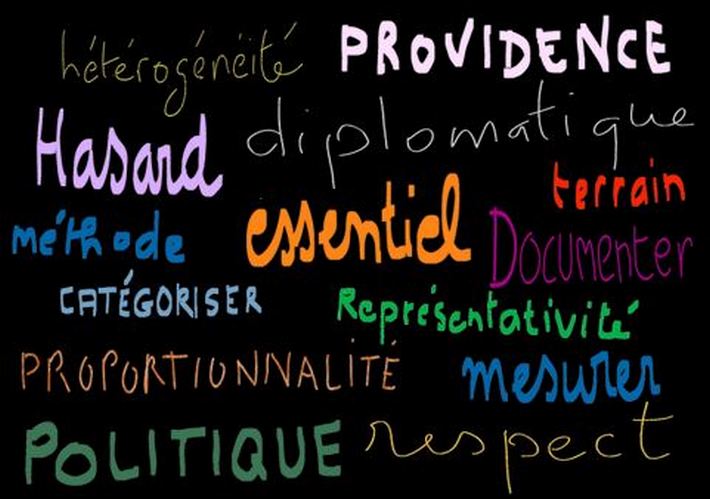 hétérogénéité PROVIDENCE
Hasard diplomatique
terrain
méthode essentiel Documenter
CATÉGORISER Représentativité
PROPORTIONNALITÉ mesurer
POLITIQUE respect